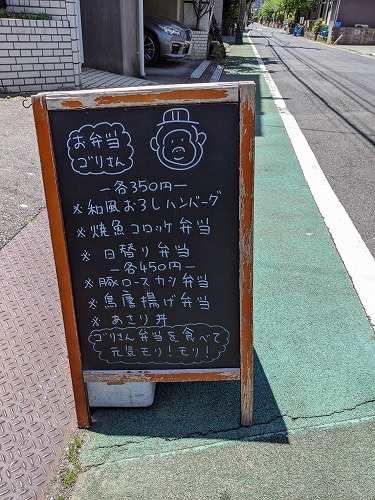 お弁当
ゴリさん
ー各350円ー
※和風おろしハンバーグ
※焼魚コロッケ弁当
※日替り弁当
ー各450円ー
※豚ロースカツ弁当
※鳥唐揚げ弁当
※あさり丼
ゴリさん弁当を食べて
元気モリ!モリ!